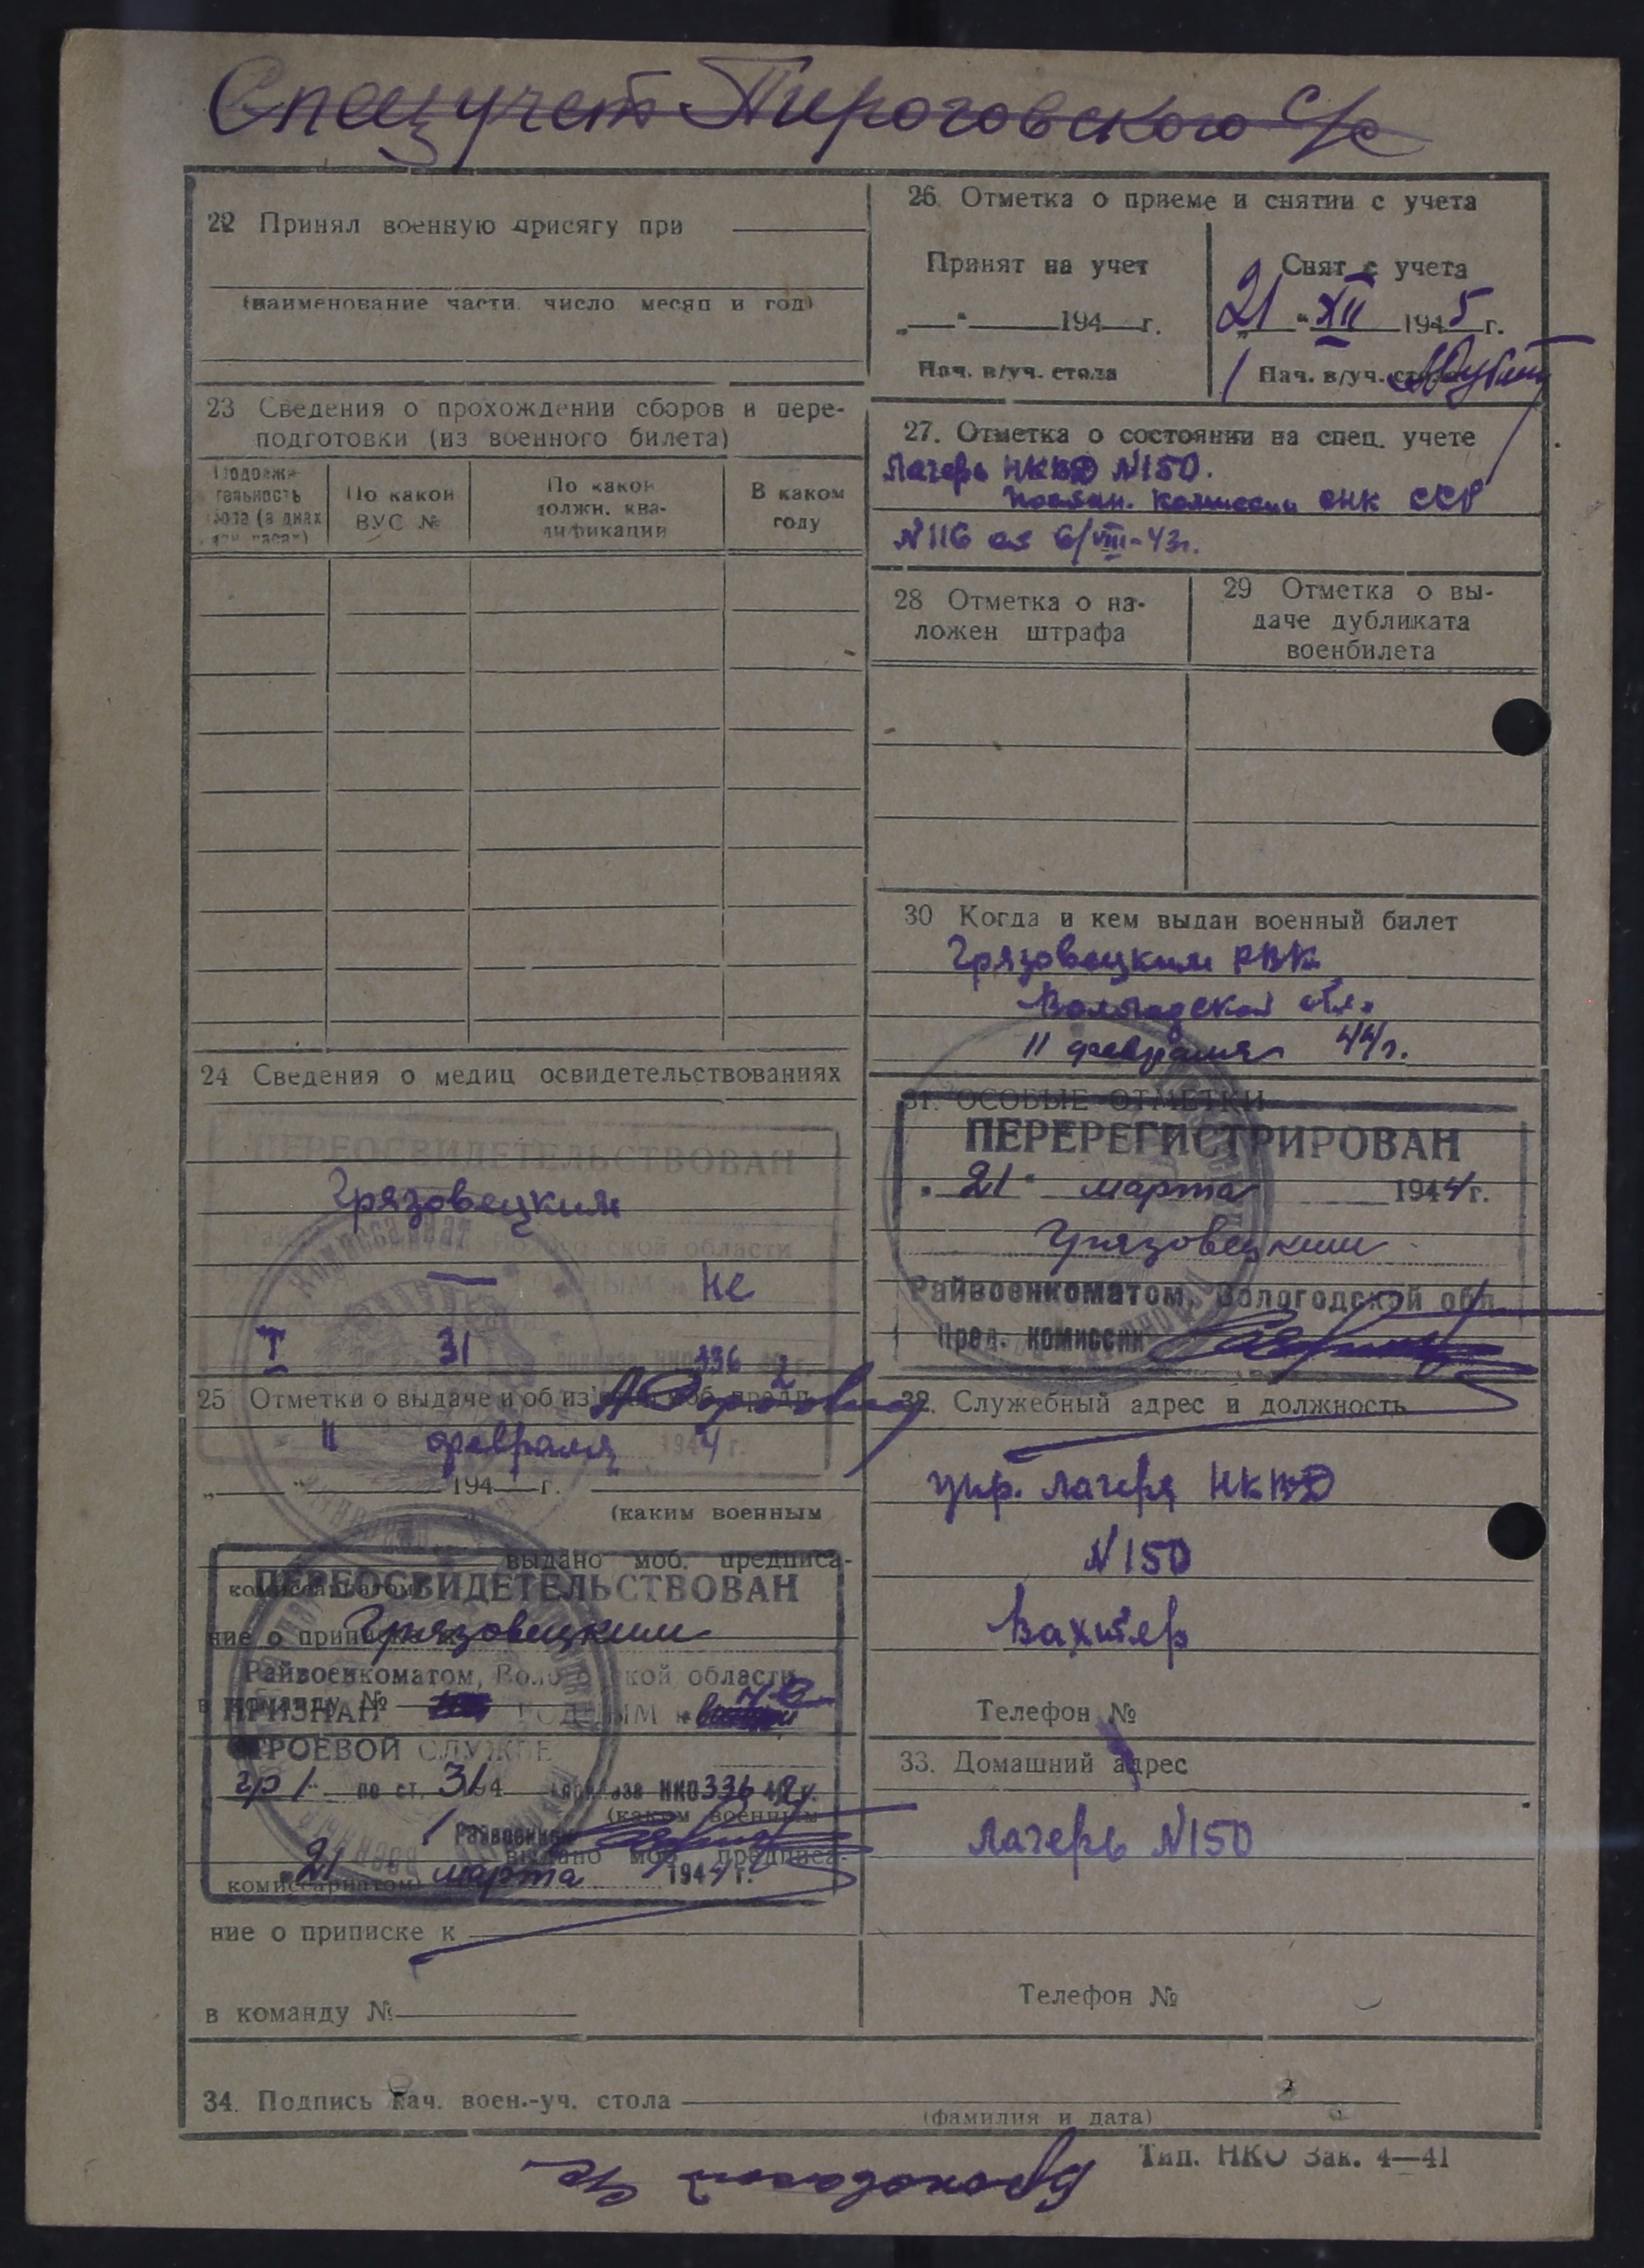 Спецучет Пироговского с/с
22 Принял военную присягу при
(наименование части, число месяц и год)
23 Сведения о прохождении сборов и пере-
подготовки (из военного билета)
Продолжи-
тельность
сбора (в днях
или часах)
По какой
ВУС №
По какой
должн. ква-
лификации
В каком
году
24 Сведения о медиц освидетельствованиях
ПЕРЕОСВИДЕТЕЛЬСТВОВАН
Грязовецким
— Не
I 31 336 2
25 Отметки о выдаче и об
11 февраля 1944 г.
„ “ 194 г.
(каким военным
выдано моб. предписа-
комиссариатом)
ПЕРЕОСВИДЕТЕЛЬСТВОВАН
ние о приписке к
Грязовецким
Райвоенкоматом, Вологодской области
в команду №
ПРИЗНАН ГОДНЫМ к
СТРОЕВОЙ СЛУЖБЕ
гр 1 по ст. 31 приказа НКО 336 42 г.
(каким военным
Райвоенком
выдано моб. предписа-
комиссариатом)
„21 марта 1944 г.
ние о приписке к
в команду №
26. Отметка о приеме и снятии с учета
Принят на учет
„ “ 194 г.
Нач. в/уч. стола
Снят с учета
21 “ XII 1945 г.
Нач. в/уч. стола
27. Отметка о состоянии на спец. учете
Лагерь НКВД №150.
Постан. Комиссии СНК ССР
№116 от 6/VIII-43г.
28 Отметка о на-
ложен штрафа
29 Отметка о вы-
даче дубликата
военбилета
30 Когда и кем выдан военный билет
Грязовецким РВК
Вологодской обл.
11 февраля 44г.
31. ОСОБЫЕ ОТМЕТКИ
ПЕРЕРЕГИСТРИРОВАН
„21“ марта 1944 г.
Грязовецким
Райвоенкоматом, Вологодской обл.
Пред. комиссии
32. Служебный адрес и должность
Упр. лагеря НКВД
№150
Вахтер
Телефон №
33. Домашний адрес
Лагерь №150
Телефон №
34. Подпись нач. воен.-уч. стола
(фамилия и дата)
Тип. НКО Зак. 4—41